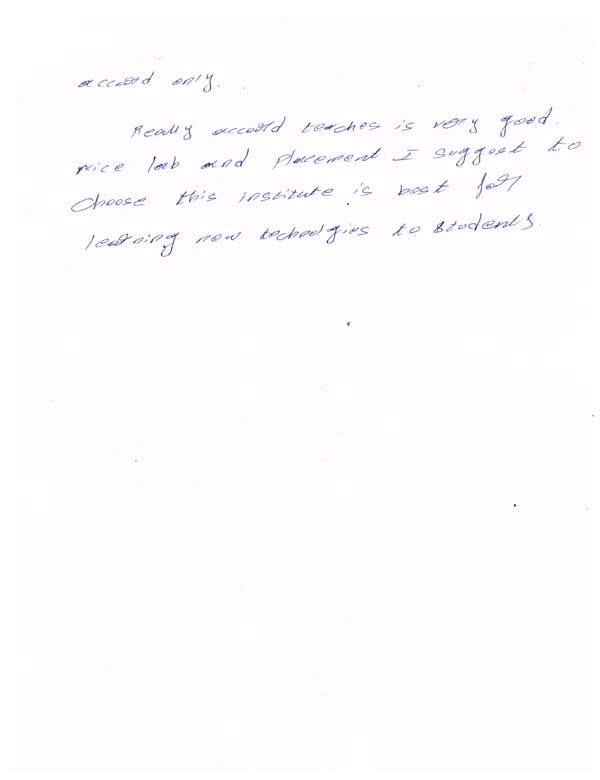 accord only.
Really accord teaches is very good.
nice lab and placement. I suggest to
choose this institute is best for
learning new technolgies to students.